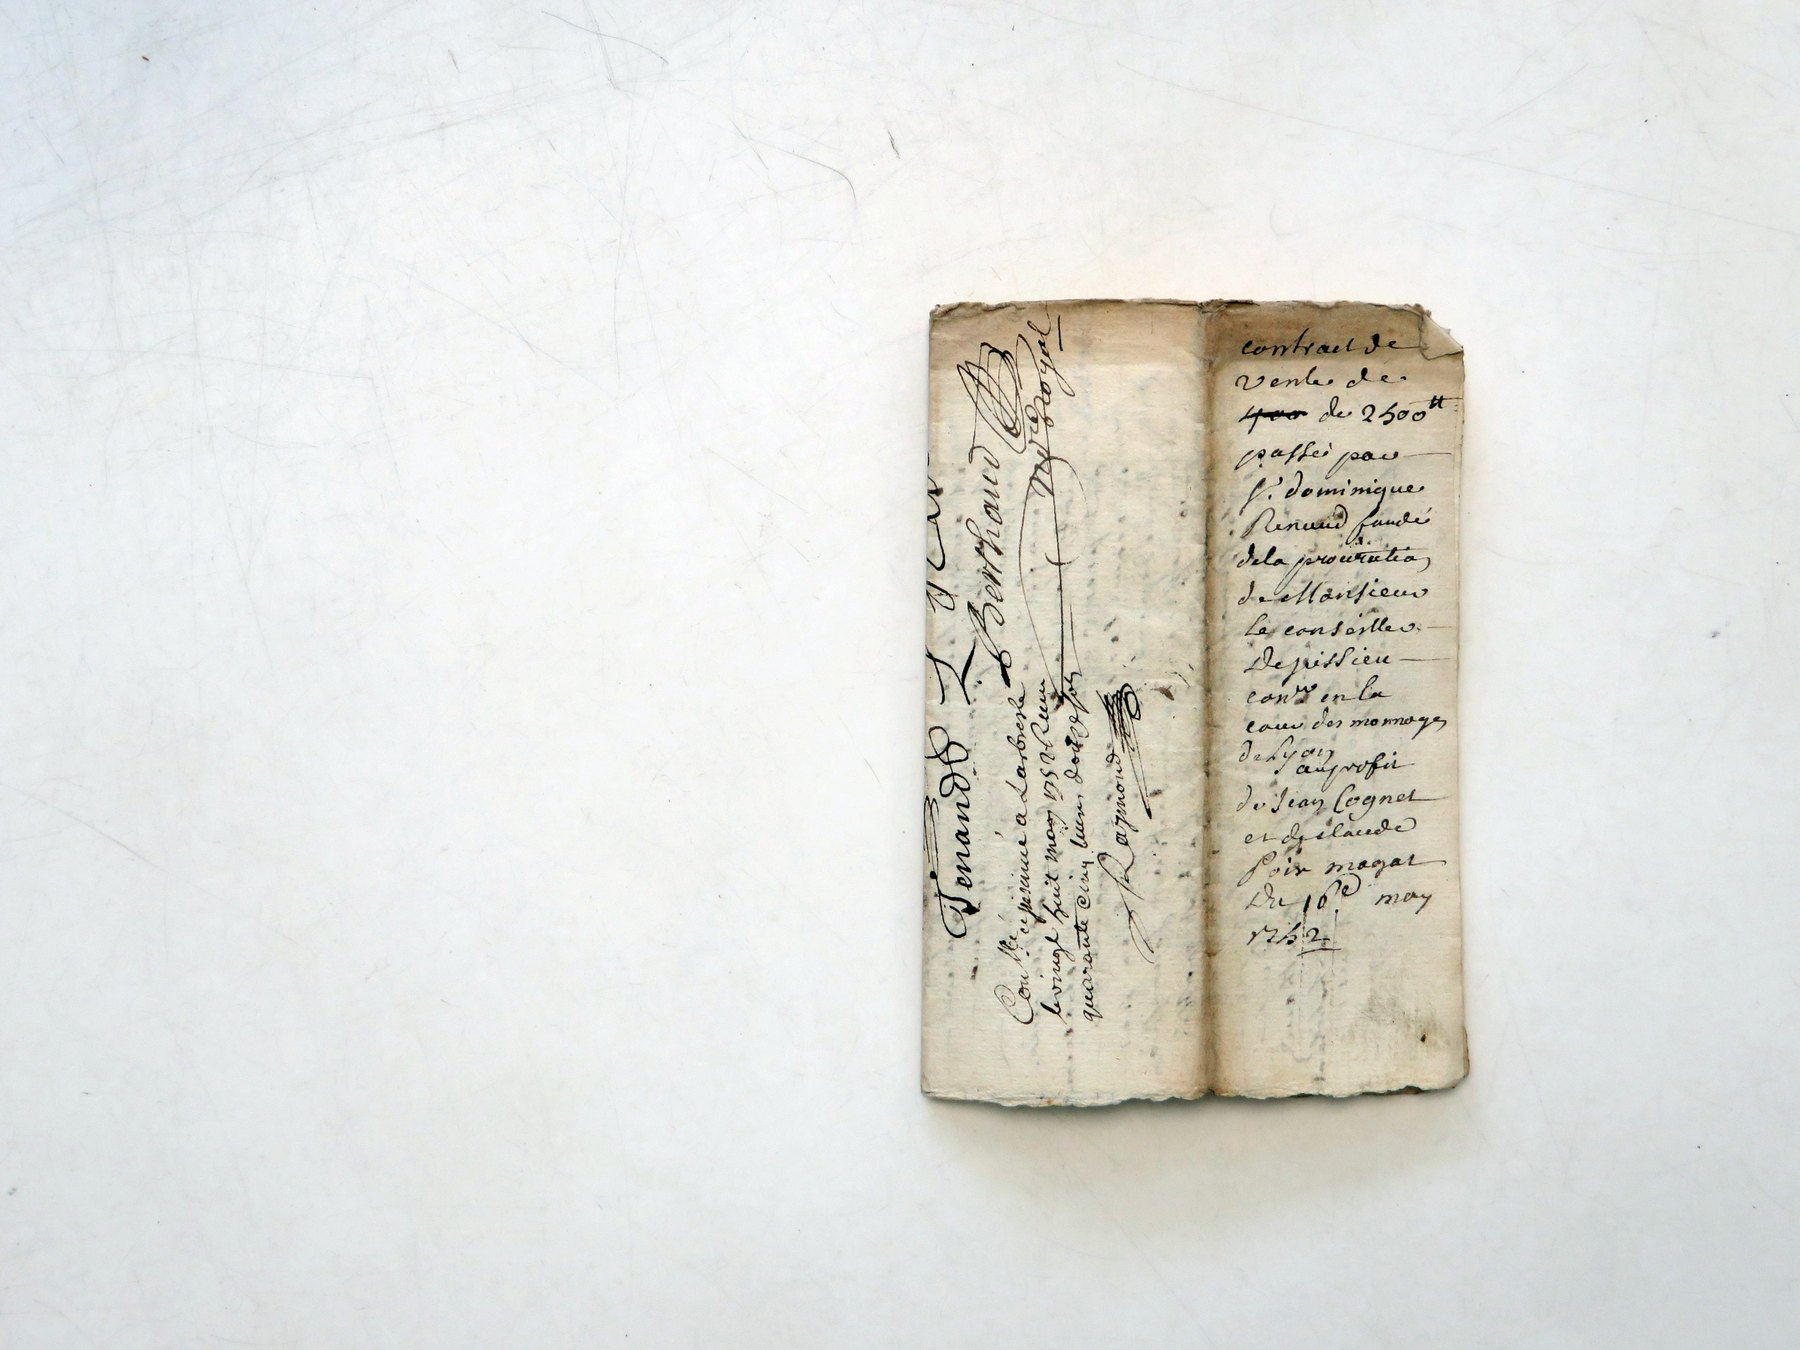 Renaud
Berthaud
Nre Royal
Con.llé exprimé a Larbresle
le vingt huit may 1752 Reçu
quarante cinq livres douze sols
Raymond
contract de
vente de
400 de 2500 tt
passé par
Sr. dominique
Renaud fondé
dela procuration
de Monsieur
Le conseiller
Depissieu
conr en la
cour des monnoyes
de Lyon
au profit
de Jean Cognet
et de claude
Poix magat
Du 16e may
1752